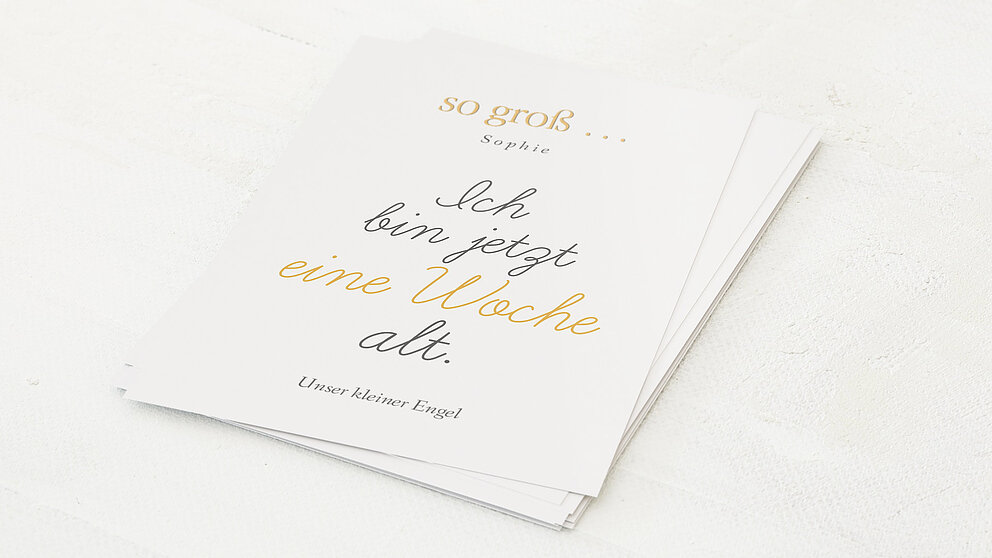 so groß ...
Sophie
Ich
bin jetzt
eine Woche
alt.
Unser kleiner Engel